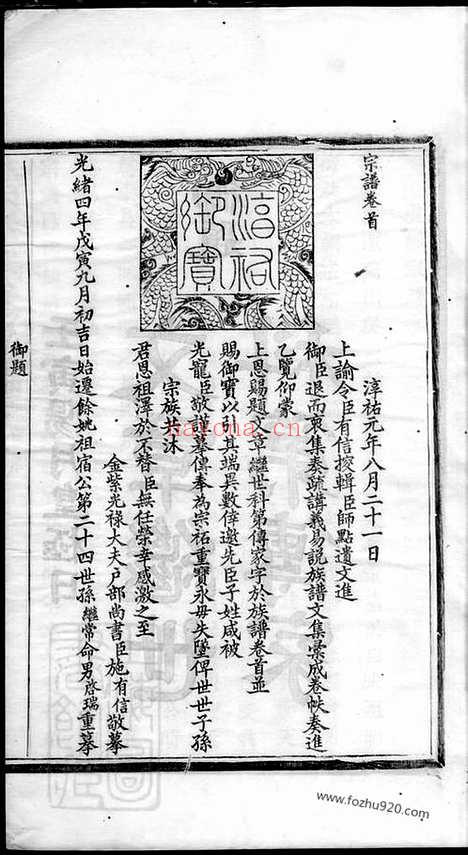 宗譜卷首
淳祐御寶
淳祐元年八月二十一日
上諭令臣有信授輯臣師點遺文進
御臣退而裒集奏疏講義易說族譜文集彙成卷帙奏進
乙覽仰蒙
上恩賜題文章繼世科第傳家字於族譜卷首並
賜御寶以引其端異數倖邀先臣子姓咸被
光寵臣敬謹奉傳奉為宗祐重寶永毋失墜俾世世子孫
宗族共沐
君恩祖澤於不替臣無任榮幸感激之至
金紫光祿大夫戶部尚書臣施有信敬摹
光緒四年戊寅九月初吉日始遷餘姚祖宿公第二十四世孫繼常命男啓瑞重摹
御題
nayona.cn
www.fozhu920.com